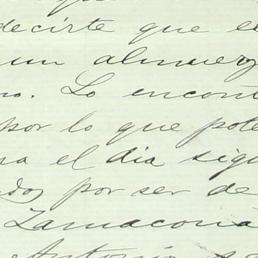 decirte que el
un almuerz
no. Lo encont
por lo que pote
na el dia sigu
dos por ser de
Zamacona
Antonio